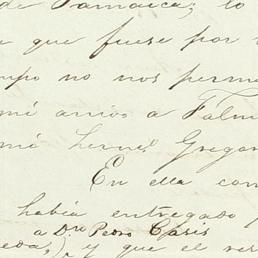 de Jamaica; lo
que fuese por
mpo no nos perm
mi amigo a Falm
mó hernos Gregor
En ella con
había entregado
a Dn Pedro Casis
eda,) y que el res